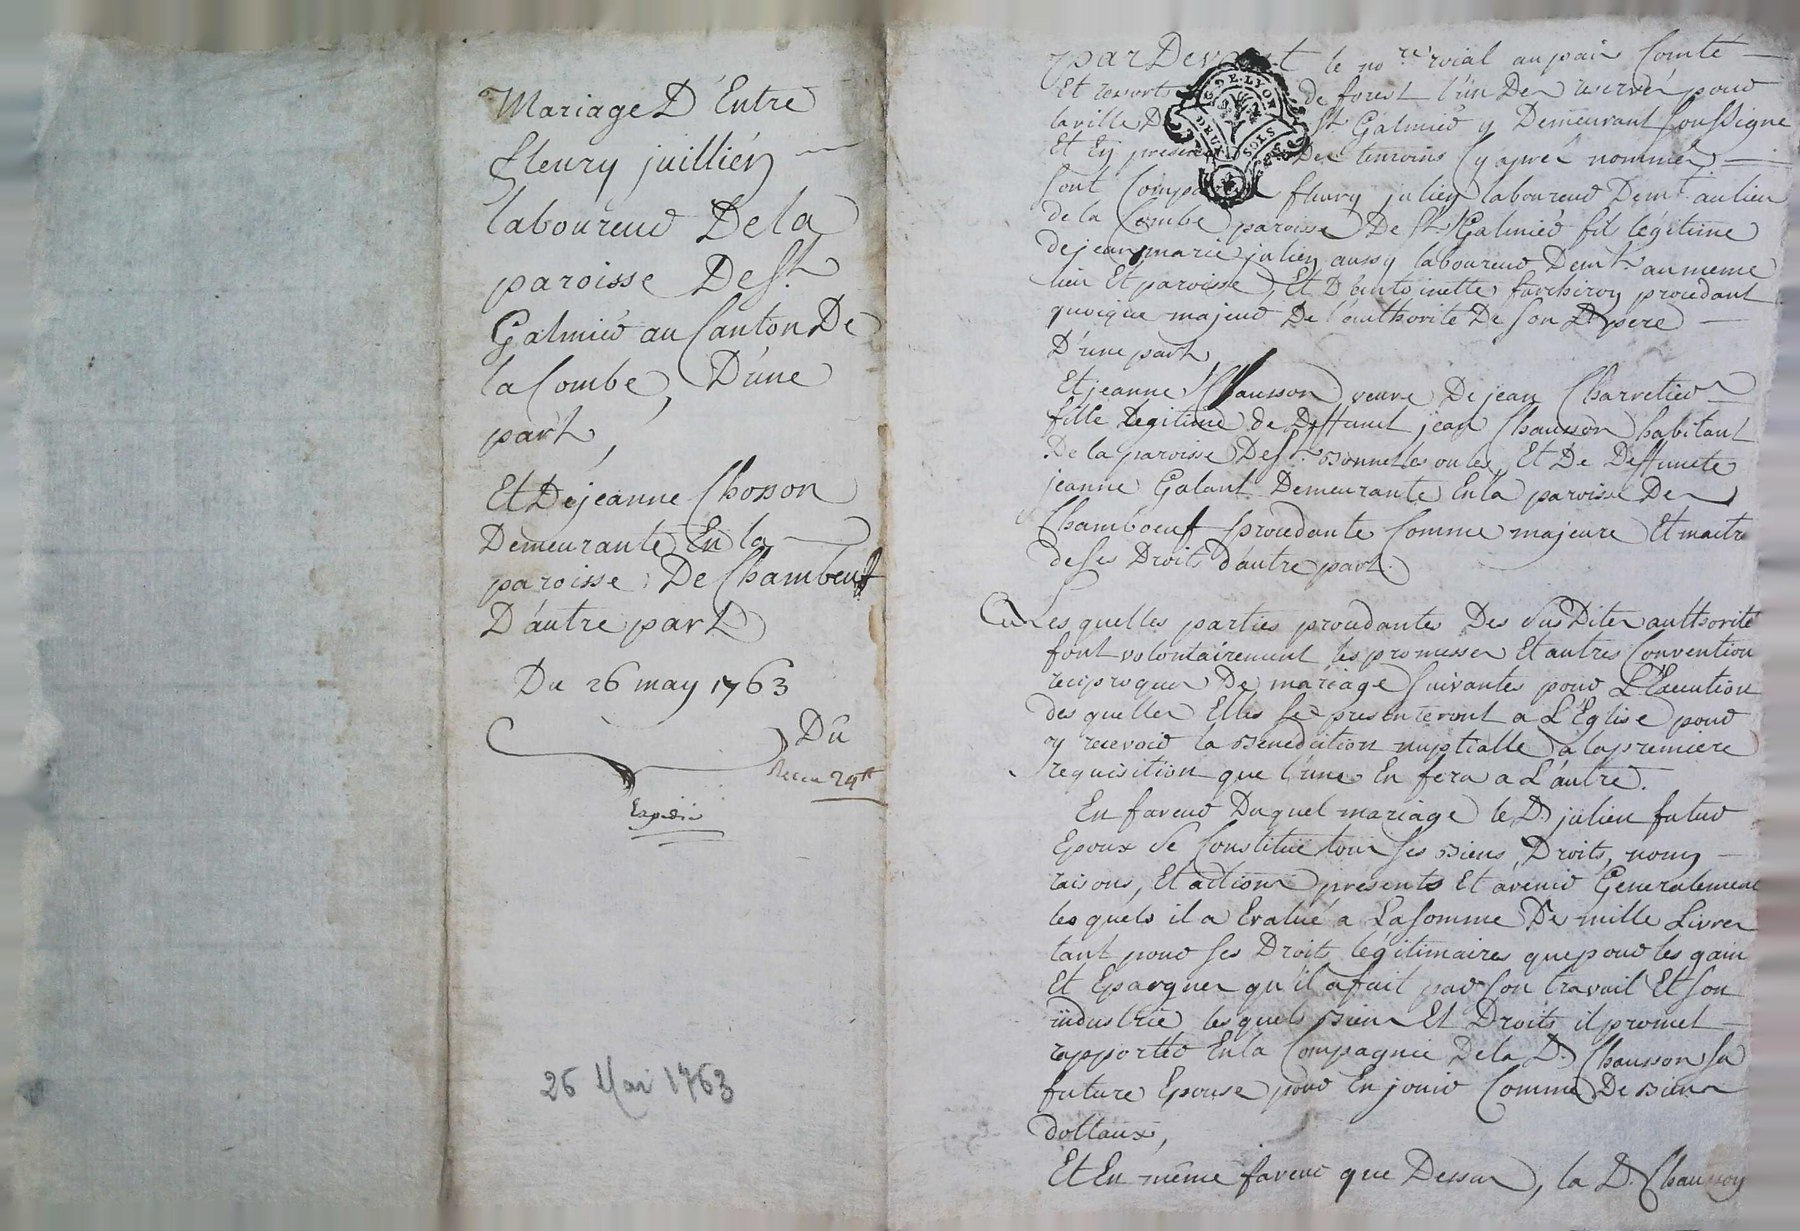 Mariage D'Entre
fleury juillien
laboureur De la
paroisse De St
Galmier au Canton De
la Combe, D'une
part,
Et De jeanne Chosson
Demeurante En la
paroisse De Chambeuf
D'autre part
Du 26 may 1763
Du
Receu 29tt
Expedié
26 Mai 1763
G. DE LYON
DEUX SOLS
par Devant le nore roial au pais Comté
Et ressort de forest l'un Des reservés pour
la ville D St Galmier y Demeurant soussigné
Et En presence Des temoins Cy après nommés
sont Comparus fleury julien laboureur Demt au lieu
de la Combe paroisse De St Galmier fils légitime
de jean marie julien aussy laboureur Demt au meme
lieu Et paroisse, Et D'antoinette procedant
quoique majeur De l'authorité De son D. pere
D'une part
Et jeanne Chausson veuve De jean Charretier
fille legitime de Deffunct jean Chausson habitant
De la paroisse De St Bonnet les oules, Et De Deffuncte
jeanne Galant Demeurante En la paroisse De
Chamboeuf procedante Comme majeure Et maitre
de ses Droits d'autre part.
Les quelles parties procedantes Des sus Dites authorité
font volontairement les promesses Et autres Convention
reciproques De mariage suivantes pour L'Execution
des quelles Elles se presenteront a L'Eglise pour
y recevoir la Benediction nuptialle a la premiere
requisition que l'une En fera a L'autre.
En faveur Duquel mariage le D. julien futur
Epoux se Constitue tous ses Biens, Droits, noms
raisons, Et actions presents Et avenir Generalement
les quels il a Evalué a La somme De mille Livres
tant pour ses Droits légitimaires que pour les gain
Et Epargnes qu'il a fait par son travail Et son
industrie les quels Biens Et Droits il promet
rapporter En la Compagnie De la D. Chausson sa
future Epouse pour En jouir Comme De Biens
dottaux,
Et En même faveur que Dessus, la D. Chausson